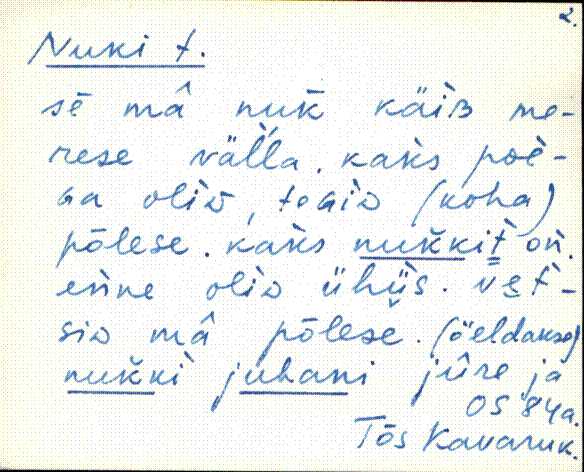 2.
Nuki t.
sē mâ nuk̆ käi̬ʙ me-
rese välla. kaks poè-
ga oliᴅ, tegiᴅ (koha)
põlese. kaks nuk̆kit on.
enne oliᴅ ühiis. vet-
siᴅ mâ põlese. (öeldakse)
nuk̆ki juhani jûre ja
OS '84a.
Tõs Kavaruk.